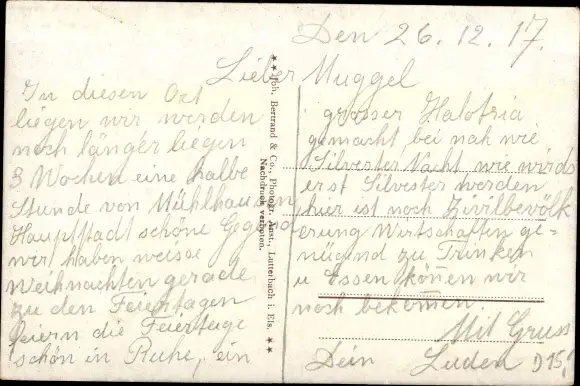 Den 26.12.17.
Lieber Muggel
In diesen Ort
liegen wir werden
noch länger liegen
3 Wochen eine halbe
Stunde von Mühlhausen
Hauptstadt schöne Gegend
wir haben weisse
Weihnachten gerade
zu den Feiertagen
feiern die Feiertage
schön in Ruhe, ein
grosser Halotria
gemacht bei nah wie
Silvester Nacht wie wirds
erst Silvester werden
hier ist noch Zivilbevölk
erung Wirtschaften ge-
nügend zu Trinken
u Essen können wir
noch bekommen.
Mit Gruss
Dein Luden
D 15,
★★ Joh. Bertrand & Co., Photogr. Anst., Lutterbach i. Els. ★★
Nachdruck verboten.